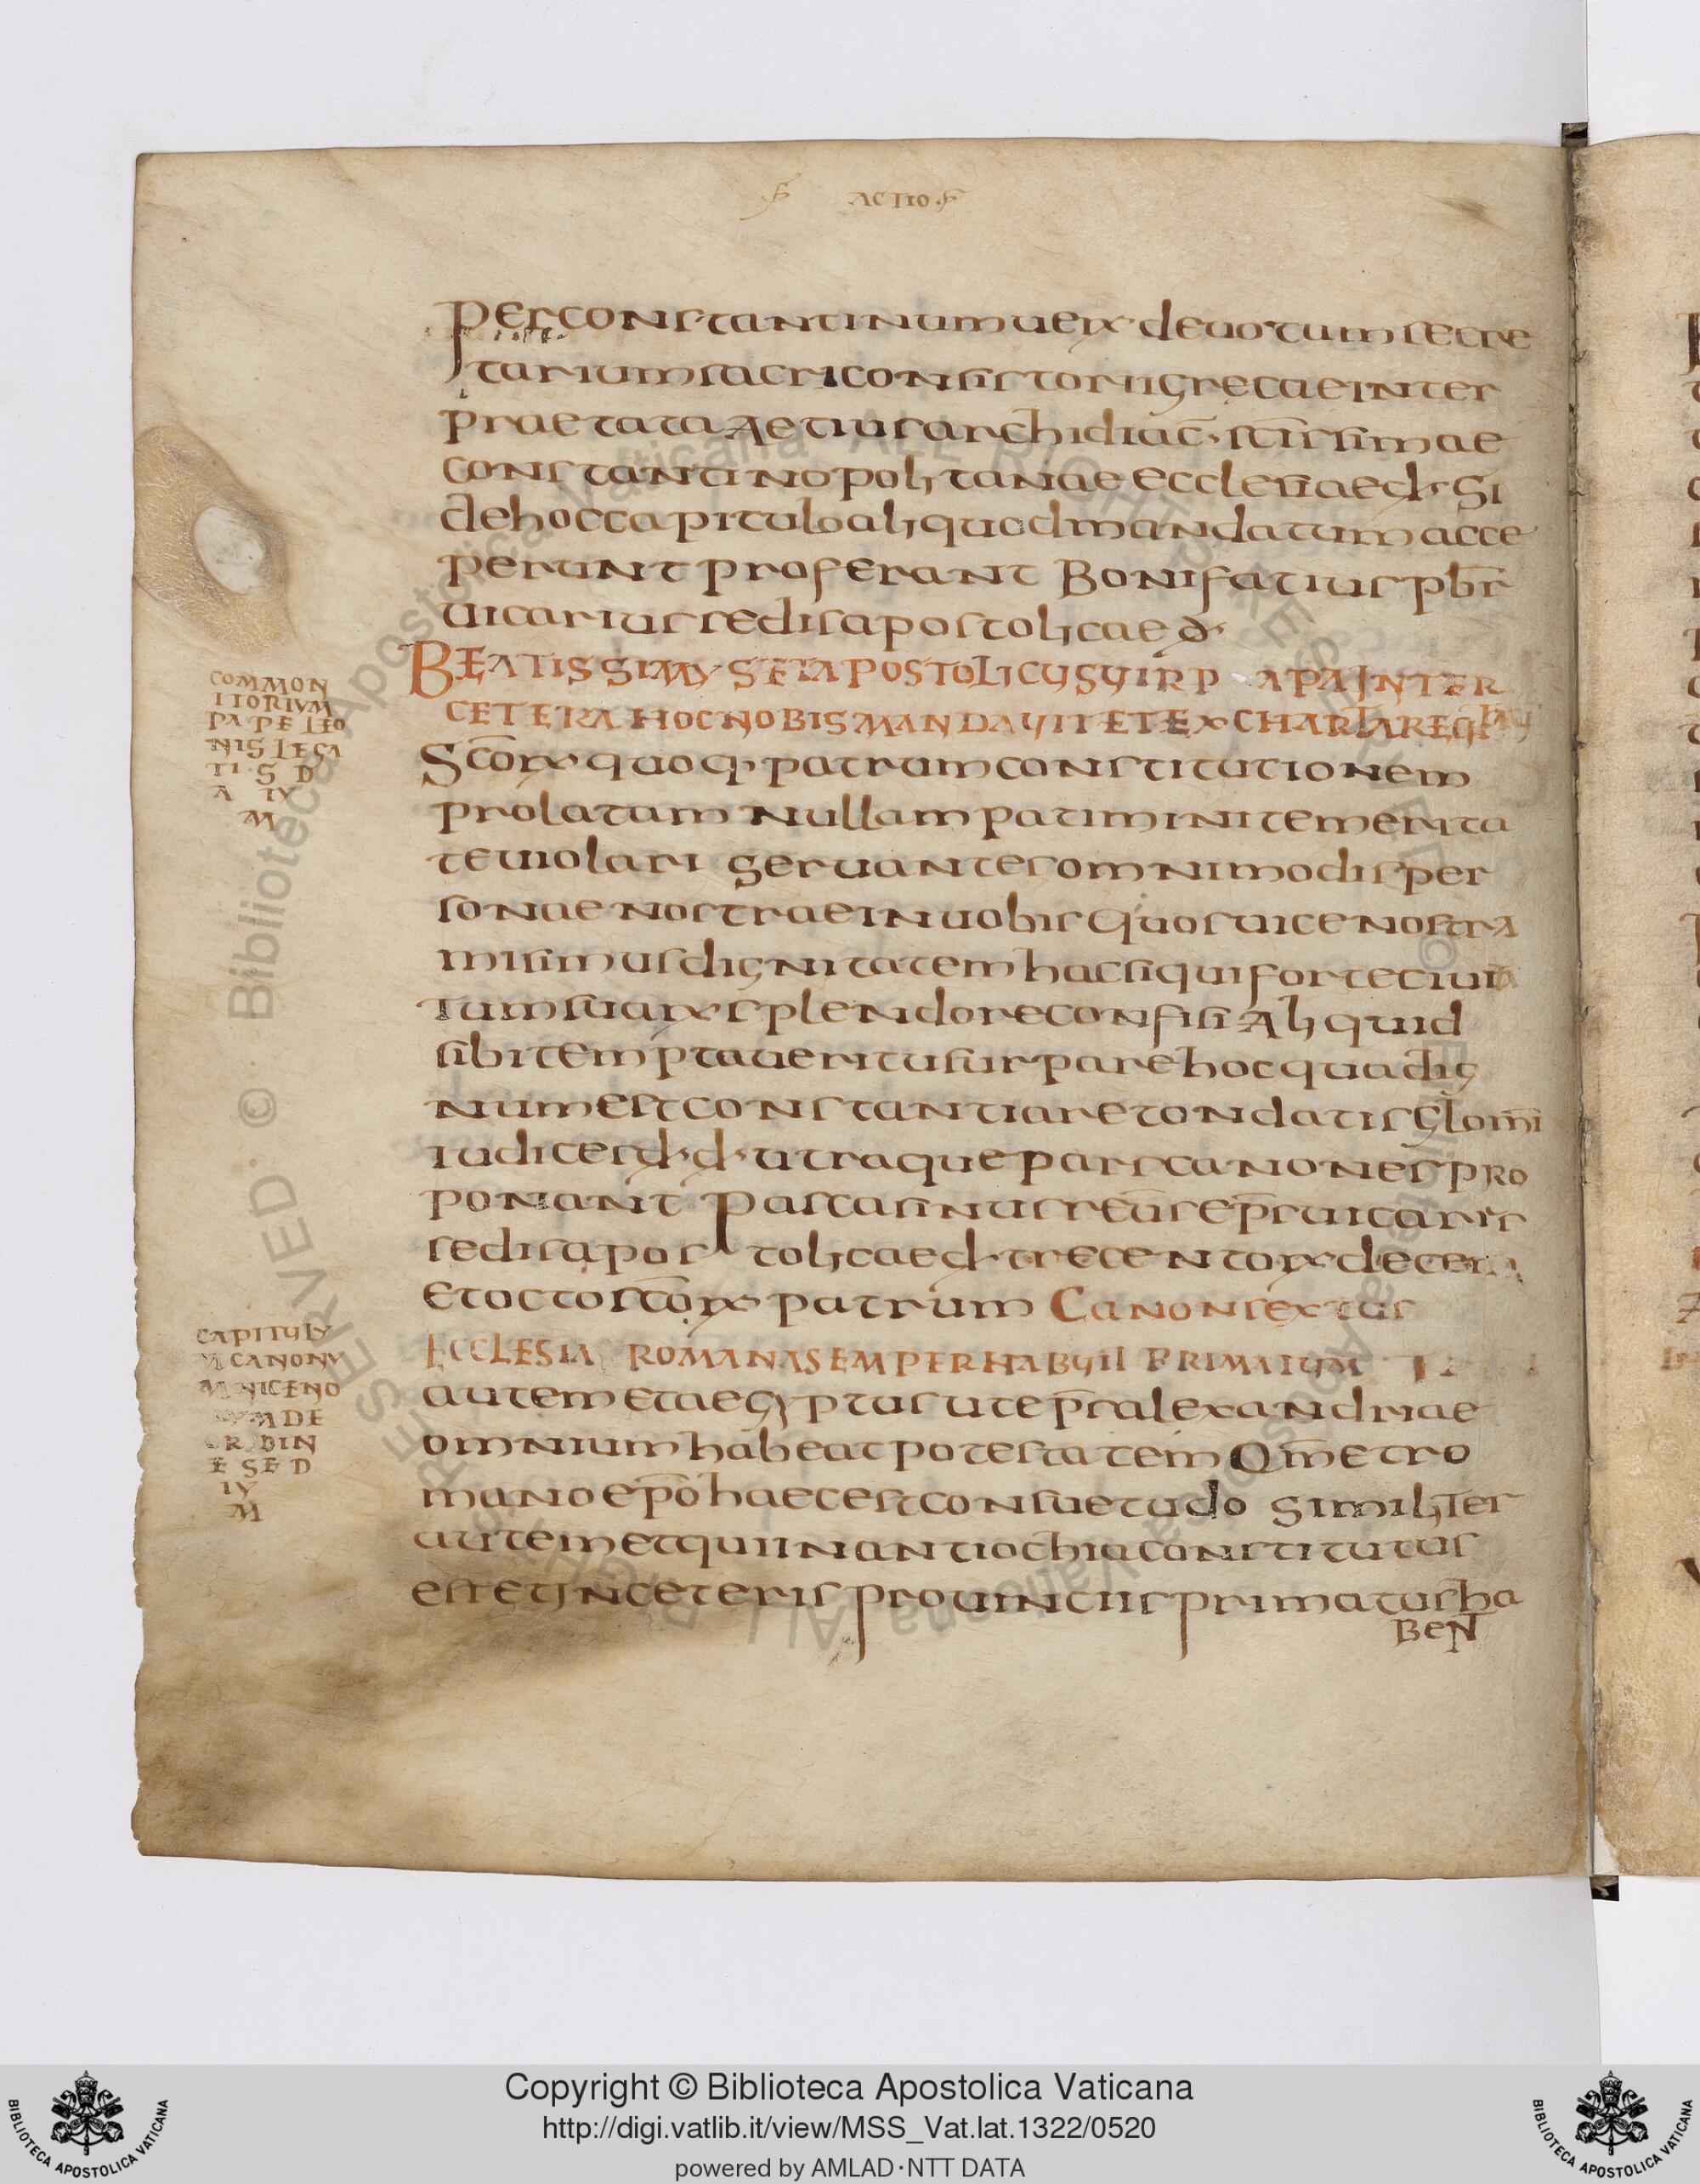 ACTIO
per constantinum ueꝝ deuotum secre
tarium sacri consistorii greca einter
praetata Aetius archidiac̄ sc̄issimae
constantinopolitanae ecclesiae d̄ Si
de hoc capitulo aliquod mandatum acce
perunt proferant Bonifatius pb̄r
uicarius sedis apostolicae d̄
BEATISSIMUS ET APOSTOLICUS UIR P APA INTER
CETERA HOC NOBIS MANDAUIT ET EX CHARTA
Sc̄oꝝ quoq· patrum constitutionem
prolatam Nullam patimini temerita
te uiolari Seruantes omnimodis per
sonae nostrae in uobis Quos uice nostra
misimus dignitatem hac si qui forte ciuita
tum suaꝝ splendore confisi Aliquid
sibi temptauerit usurpare hoc qua dig
num est constantia retondatis Glom̄i
iudices d̄ d̄ utraque pars canones pro
ponant Pascasinus reu̅s ep̅s uicaris
sedis apostolicae d̄ trecentoꝝ decem
et octo sc̄oꝝ patrum Canon sextus
ECCLESIA ROMANA SEMPER HABUIT PRIMATUM
autem et aegyptus ut ep̅s alexandriae
omnium habeat potestatem Qm̄ et ro
mano ep̅o haec est consuetudo Similiter
autem et qui in antiochia constitutus
est et in ceteris prouinciis primatus ha
BeN̅T
COMMON
ITORIUM
PAPE LEO
NIS LEGA
TI S D
A IX
M
CAPITULU
M CANONU
M NICENO
RUM DE
ORDIN
E SED
IU
M
Copyright © Biblioteca Apostolica Vaticana
http://digi.vatlib.it/view/MSS_Vat.lat.1322/0520
powered by AMLAD·NTT DATA
BIBLIOTECA APOSTOLICA VATICANA
BIBLIOTECA APOSTOLICA VATICANA